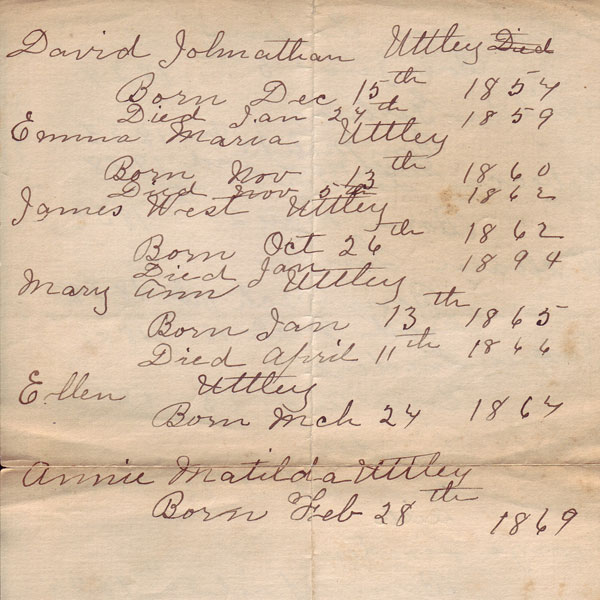 David Johnathan Uttley Died
Born Dec 15th 1857
Died Jan 27th 1859
Emma Maria Uttley
Born Nov 13th 1860
Died Nov 5th 1862
James West Uttley
Born Oct 26th 1862
Died Jan 1894
Mary Ann Uttley
Born Jan 13th 1865
Died April 11th 1866
Ellen Uttley
Born Mch 27 1867
Annie Matilda Uttley
Born Feb 28th 1869